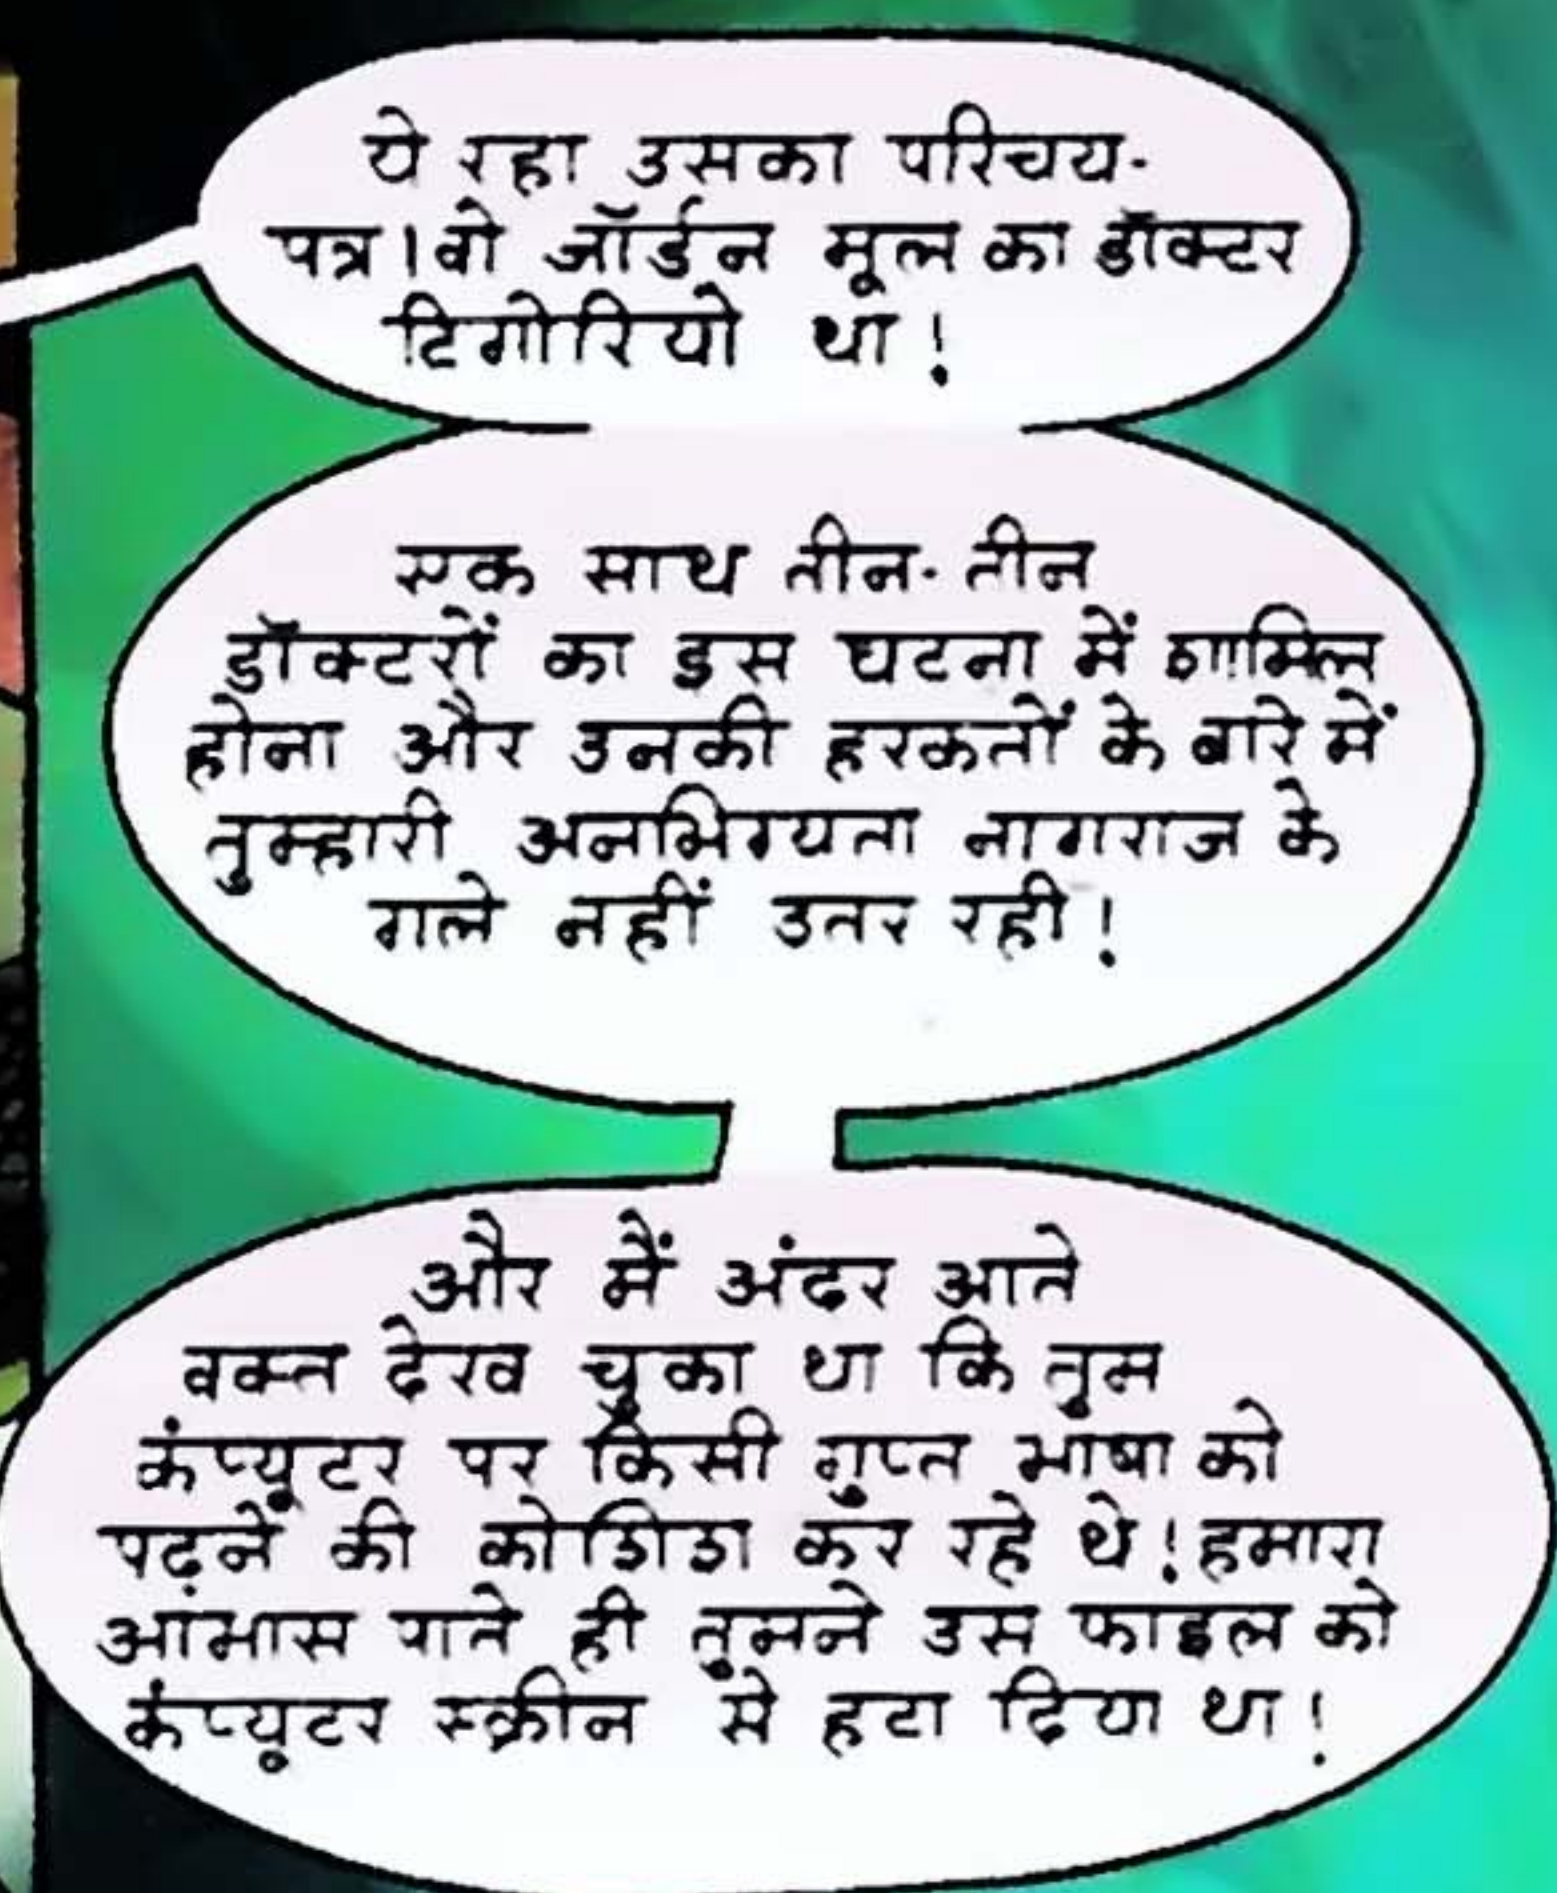 ये रहा उसका परिचय-
पत्र।वो जॉर्डन मूल का डॉक्टर
टिगोरियो था!
एक साथ तीन-तीन
डॉक्टरों का इस घटना में शामिल
होना और उनकी हरकतों के बारे में
तुम्हारी अनभिग्यता नागराज के
गले नहीं उतर रही!
और मैं अंदर आते
वक्त देख चुका था कि तुम
कंप्यूटर पर किसी गुप्त भाषा को
पढ़ने की कोशिश कर रहे थे!हमारा
आभास पाते ही तुमने उस फाइल को
कंप्यूटर स्क्रीन से हटा दिया था!